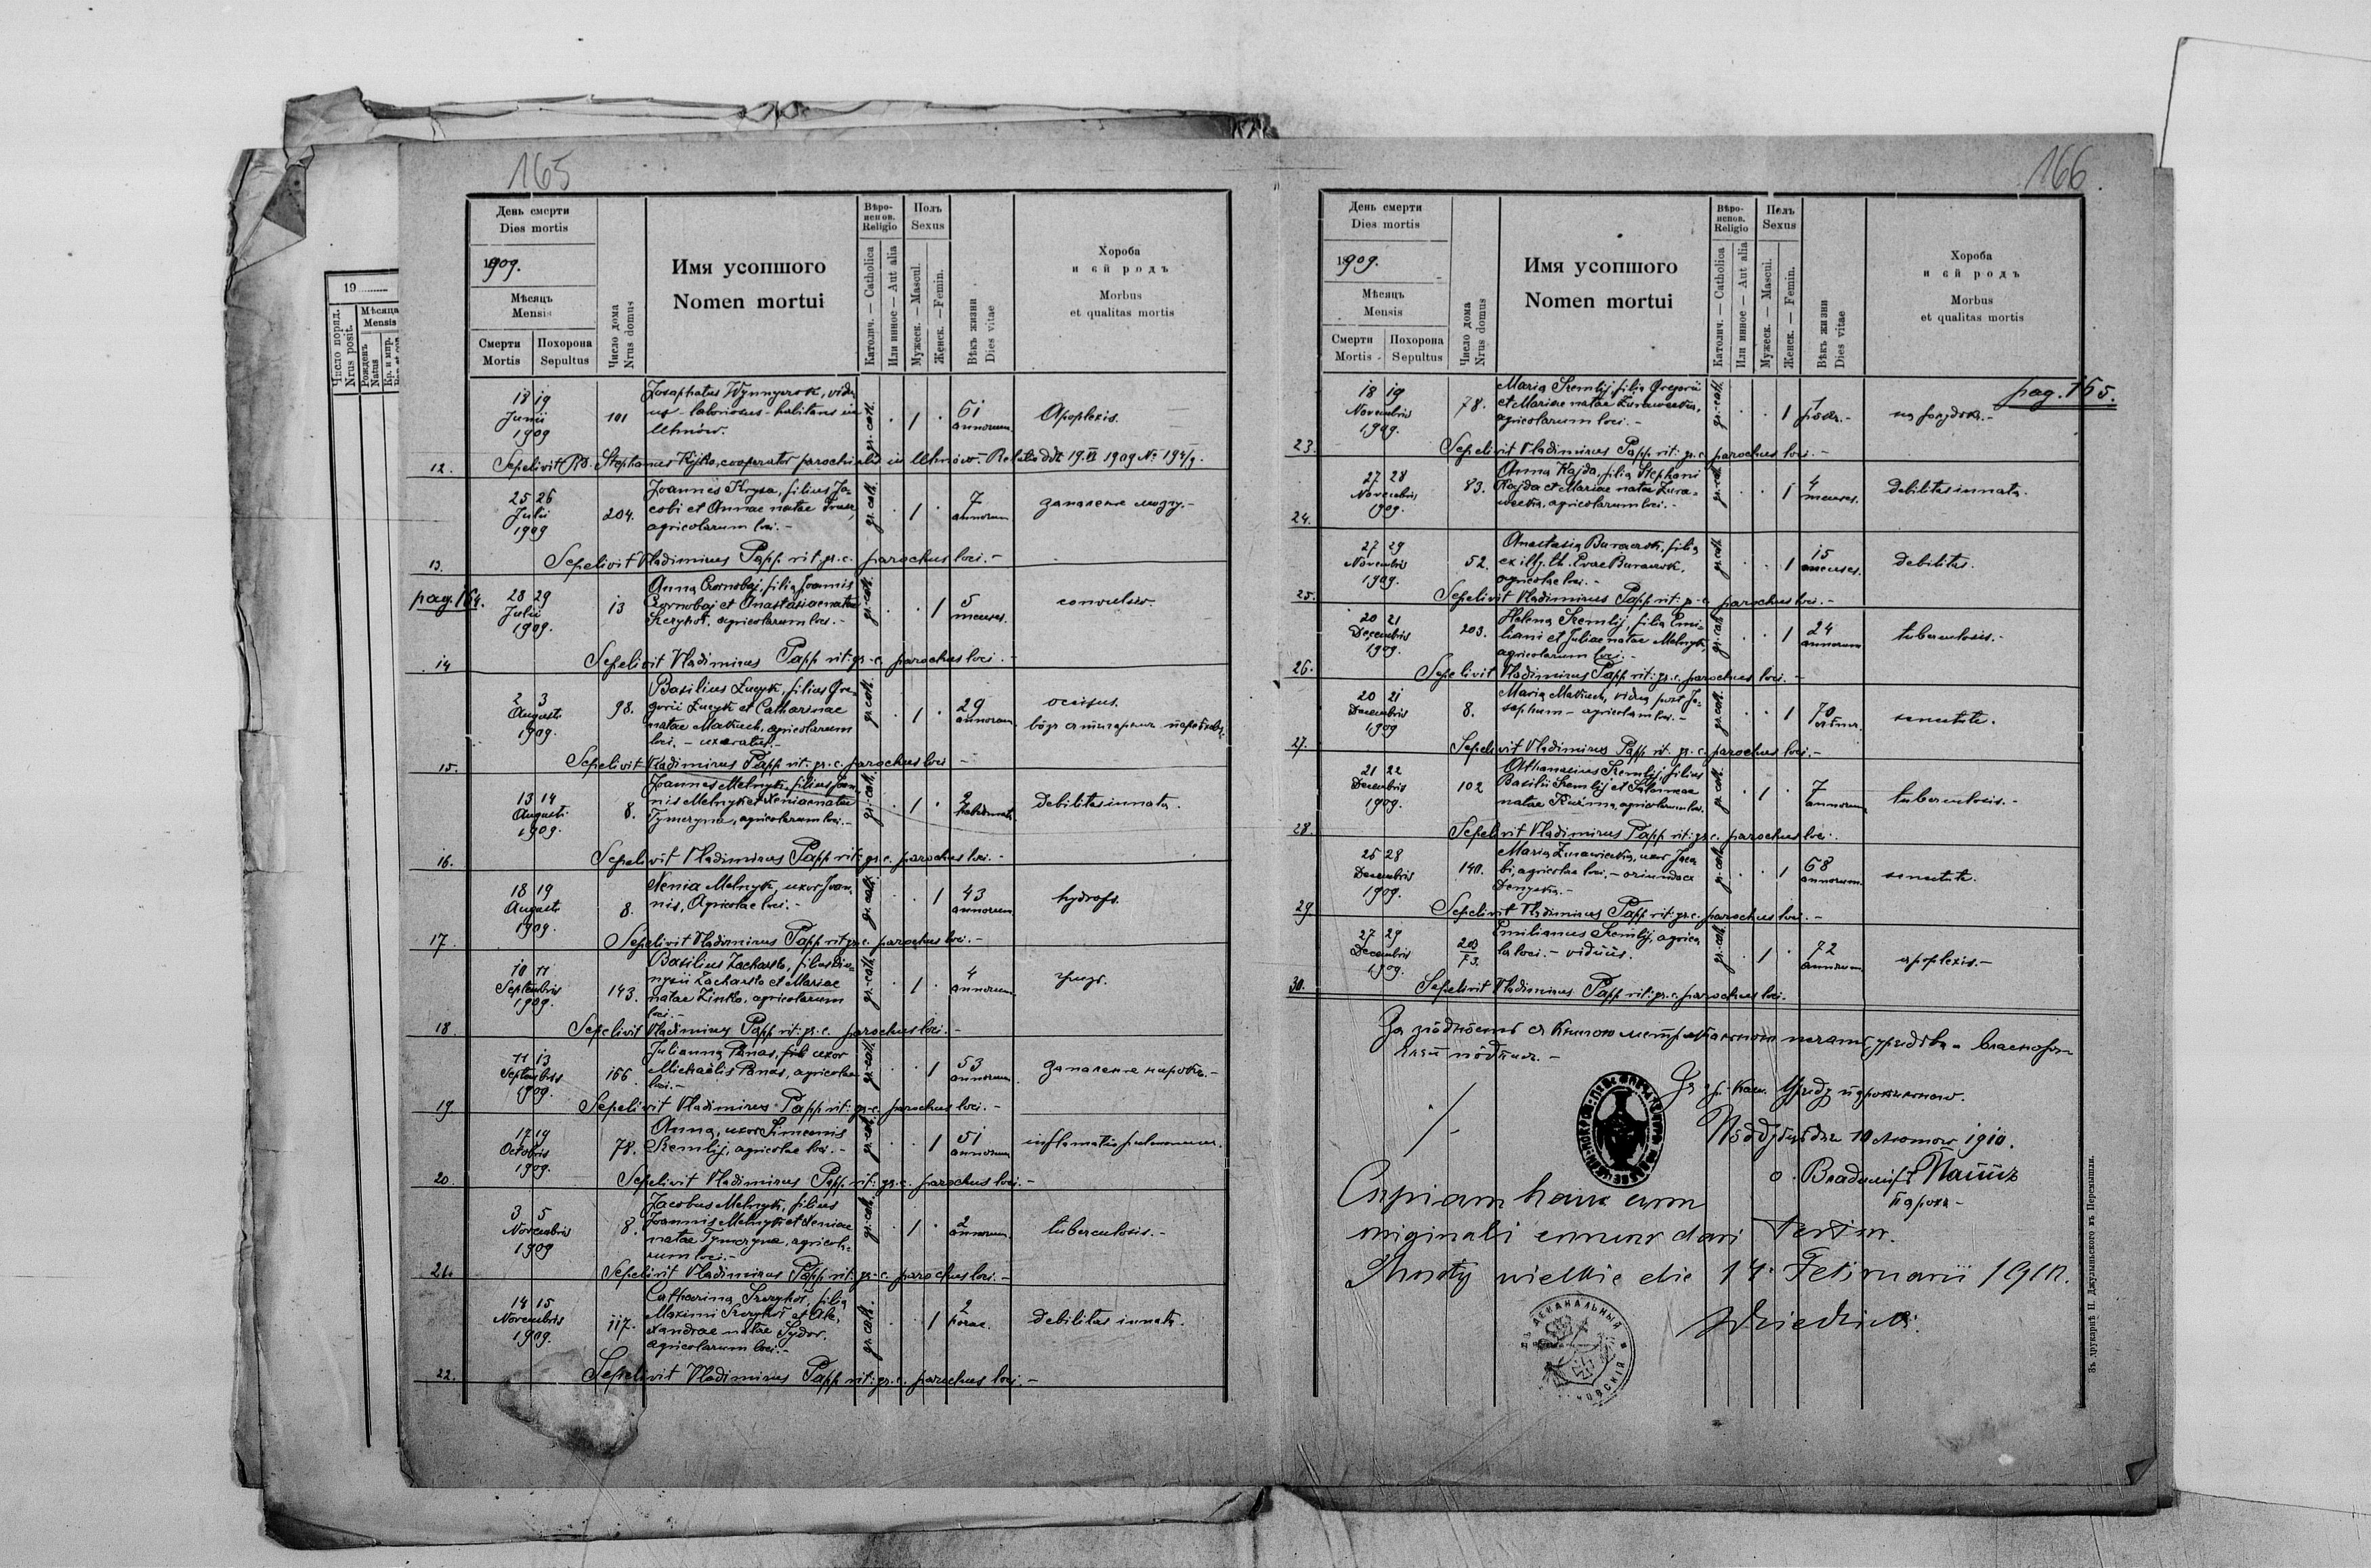 165
День смерти
Dies mortis
1909.
Мѣсяць
Mensis
Смерти
Mortis
Похорона
Sepultus
Число дома
Nrus domus
Имя усопшого
Nomen mortui
Вѣро-
испов.
Religio
Католич. — Catholica
Или инное — Aut alia
Полъ
Sexus
Мужеск. — Mascul.
Женск. — Femin.
Вѣкъ жизни
Dies vitae
Хороба
и єй родъ
Morbus
et qualitas mortis
19
Число поряд.
Nrus posit.
Мѣсяца
Mensis
Рожденъ
Natus
18 19
Junii
1909
101
Josaphatus Wynnyczok, vidu
us - laboriosus - habitans in
Uhnów.
gr. cath.
1
61
annorum
Apoplexis.
12.
Sepelivit Rd. Stephanus Kyjko, cooperator parochialis in Uhnów. Relatio ddt 19.VI 1909 No 194/9.
25 26
Julii
1909
204.
Joannes Krysa, filius Ja-
cobi et Annae natae
agricolarum loci. -
gr. cath.
1
7
annorum
запаленє мозгу. -
13.
Sepelivit Vladimirus Papp rit. gr. c. parochus loci. -
pag. 164.
28 29
Julii
1909.
13
Anna Czornobaj, filia Joannis
Czornobaj et Anastasiae natae
Skrzykot, agricolarum loci. -
gr. cath.
1
5
menses.
convulsio.
14
Sepelivit Vladimirus Papp rit: gr. c. parochus loci. -
2 3
Augusti
1909.
98.
Basilius Łucyk, filius Gre-
gorii Łucyk et Catharinae
natae Matiuch, agricolarum
loci. - uxoratus. -
gr. cath.
1
29
annorum
occisus.
15.
Sepelivit Vladimirus Papp rit. gr. c. parochus loci -
13 14
Augusti
1909.
8.
Joannes Melnyk, filius Joan-
nis Melnyk et Xeniae natae
Tymczyna, agricolarum loci. -
gr. cath.
1
2
hebdomad.
Debilitas innata.
16.
Sepelivit Vladimirus Papp rit: gr. c. parochus loci. -
18 19
Augusti
1909.
8.
Xenia Melnyk, uxor Joan-
nis, Agricolae loci. -
gr. cath.
1
43
annorum
hydrops.
17
Sepelivit Vladimirus Papp rit gr. c. parochus loci. -
10 11
Septembris
1909.
143.
Basilius Zacharko, filius Dio-
nysii Zacharko et Mariae
natae Zinko, agricolarum
loci. -
gr. cath.
1
4
annorum
18.
Sepelivit Vladimirus Papp rit: gr. c. parochus loci. -
11 13
Septembris
1909.
166
Julianna Panas, uxor
Michaëlis Panas, agricolae
loci. -
gr. cath.
1
53
annorum
запаленє нирокъ. -
19.
Sepelivit Vladimirus Papp rit: gr. c. parochus loci. -
17 19
Octobris
1909.
78.
Anna, uxor Simeonis
Skemlij, agricolae loci. -
gr. cath.
1
51
annorum
inflamatio pulmonum.
20.
Sepelivit Vladimirus Papp. rit: gr. c. parochus loci. -
3 5
Novembris
1909
8.
Jacobus Melnyk, filius
Joannis Melnyk et Xeniae
natae Tymczyna, agricola-
rum loci. -
gr. cath.
1
2
annorum.
tuberculosis. -
21.
Sepelivit Vladimirus Papp rit: gr. c. parochus loci. -
14 15
Novembris
1909.
117.
Catharina Skrzykot, filia
Maximi Skrzykot et Ale-
xandrae natae Sydor.
agricolarum loci. -
gr. cath.
1
2
horae.
Debilitas innata.
22.
Sepelivit Vladimirus Papp rit: gr. c. parochus loci. -
166.
День смерти
Dies mortis
1909.
Мѣсяць
Mensis
Смерти
Mortis
Похорона
Sepultus
Число дома
Nrus domus
Имя усопшого
Nomen mortui
Вѣро-
испов.
Religio
Католич. — Catholica
Или инное — Aut alia
Полъ
Sexus
Мужеск. — Mascul.
Женск. — Femin.
Вѣкъ жизни
Dies vitae
Хороба
и єй родъ
Morbus
et qualitas mortis
pag. 165.
18 19
Novembris
1909.
78.
Maria Skemlij filia Gregorii
et Mariae natae Żurawecka,
agricolarum loci. -
gr. cath.
1
23.
Sepelivit Vladimirus Papp rit: gr. c. parochus loci. -
27 28
Novembris
1909.
83.
Anna Hajda, filia Stephani
Hajda et Mariae natae Żura-
wecka, agricolarum loci. -
gr. cath.
1
4
menses.
Debilitas innata.
24.
27 29
Novembris
1909.
52.
Anastasia Buraczok, filia
ex illg. th. Evae Buraczok,
agricolae loci. -
gr. cath.
1
15
menses.
debilitas.
25.
Sepelivit Vladimirus Papp rit: gr. c. parochus loci. -
20 21
Decembris
1909.
203.
Helena Skemlij, filia Emi-
liani et Juliae natae Melnyk,
agricolarum loci. -
gr. cath.
1
24
annorum
tuberculosis. -
26.
Sepelivit Vladimirus Papp rit: gr. c. parochus loci. -
20 21
Decembris
1909
8.
Maria Matiuch, vidua post Jo-
sephum - agricolam loci. -
gr. cath.
1
70
annor.
senectute.
27.
Sepelivit Vladimirus Papp rit. gr. c. parochus loci. -
21 22
Decembris
1909.
102
Athanasius Skemlij, filius
Basilii Skemlij et Salomeae
natae Kuźma, agricolarum loci.
gr. cath.
1
7
annorum
tuberculosis. -
28.
Sepelivit Vladimirus Papp rit: gr. c. parochus loci.
26 28
Decembris
1909.
140.
Maria Żurawiecka, uxor Jaco-
bi, agricolae loci, - oriunda
gr. cath.
1
68
annorum
senectute.
29.
Sepelivit Vladimirus Papp rit: gr. c. parochus loci. -
27 29
Decembris
1909.
203
Emilianus Skemlij, agrico
la loci. - viduus.
gr. cath.
1
72
annorum
apoplexis. -
30.
Sepelivit Vladimirus Papp rit: gr. c. parochus loci.
За згôдность съ книгою метрикальною
Пôддубцѣ дня 10 лютого 1910.
о. Владимиръ Паппъ
парохъ -
Copiam hanc cum
originali concordari testor.
Mosty wielkie die 14. Februarii 1910.
ДЕКАНАЛЬНЫЙ
Зъ друкарнѣ П. Джулыньского въ Перемышли.